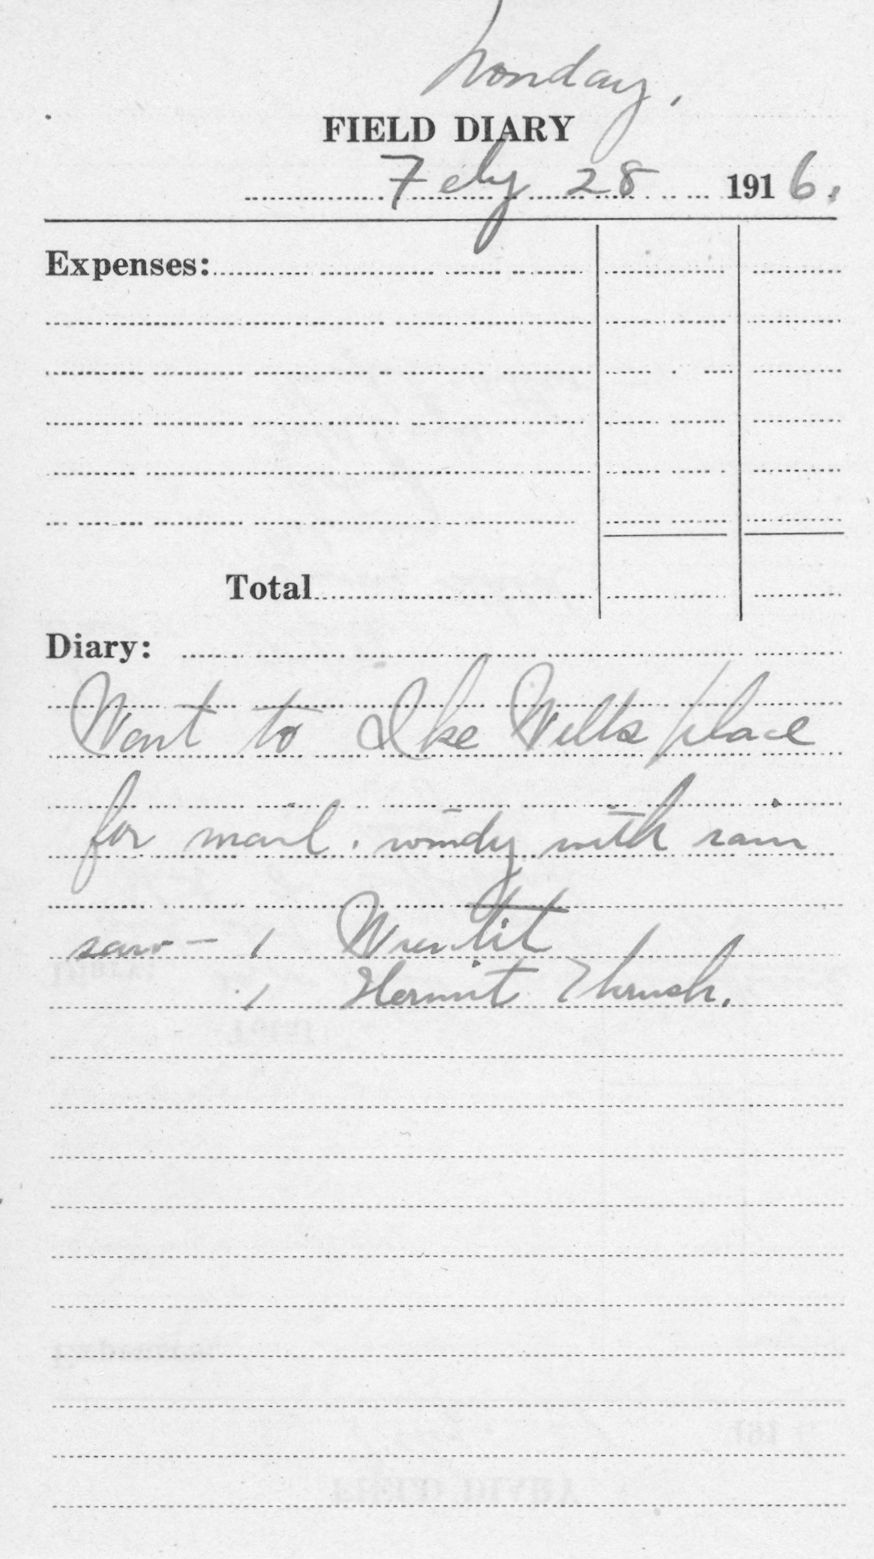 Monday.
FIELD DIARY
Feby 28 1916.
Expenses:
Total
Diary:
Went to Ike Wells place
for mail. windy with rain
saw - 1 Wrentit
1 Hermit Thrush.